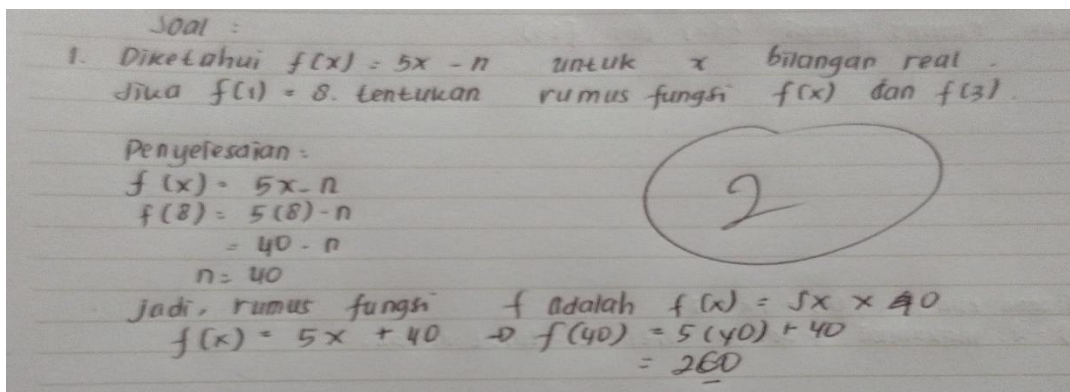 Soal :
1. Diketahui f(x) = 5x - n untuk x bilangan real.
Jika f(1) = 8. tentukan rumus fungsi f(x) dan f(3).
Penyelesaian :
f(x) = 5x - n
f(8) = 5(8) - n
= 40 - n
n = 40
2
Jadi, rumus fungsi f adalah f(x) = 5x x 40
f(x) = 5x + 40 → f(40) = 5(40) + 40
= 260